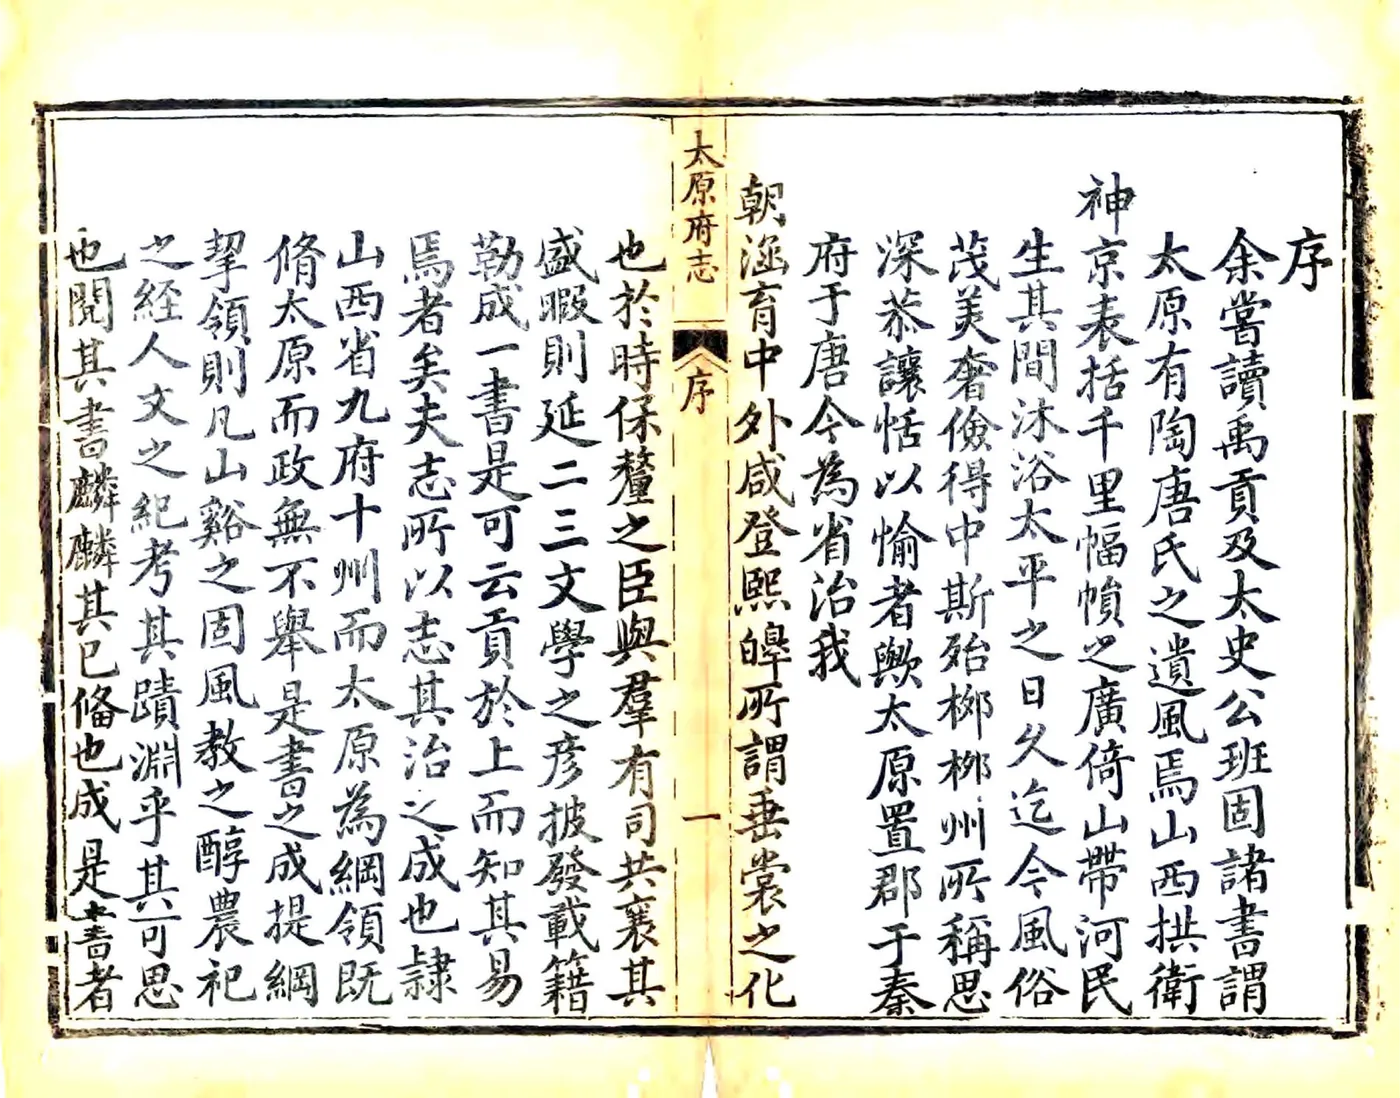 序
余嘗讀禹貢及太史公班固諸書謂
太原有陶唐氏之遺風焉山西拱衛
神京表括千里幅幀之廣倚山帶河民
生其間沐浴太平之日久迄今風俗
茂美奢儉得中斯殆栁栁州所稱思
深恭讓恬以愉者歟太原置郡于秦
府于唐今為省治我
朝涵育中外咸登熙皡所謂垂裳之化
太原府志
序
一
也於時保釐之臣與羣有司共襄其
盛暇則延二三文學之彥披發載籍
勒成一書是可云貢於上而知其易
焉者矣夫志所以志其治之成也隷
山西省九府十州而太原為綱領既
脩太原而政無不舉是書之成提綱
挈領則凡山谿之固風教之醇農祀
之經人文之紀考其蹟淵乎其可思
也閱其書麟麟其已俻也成是書者